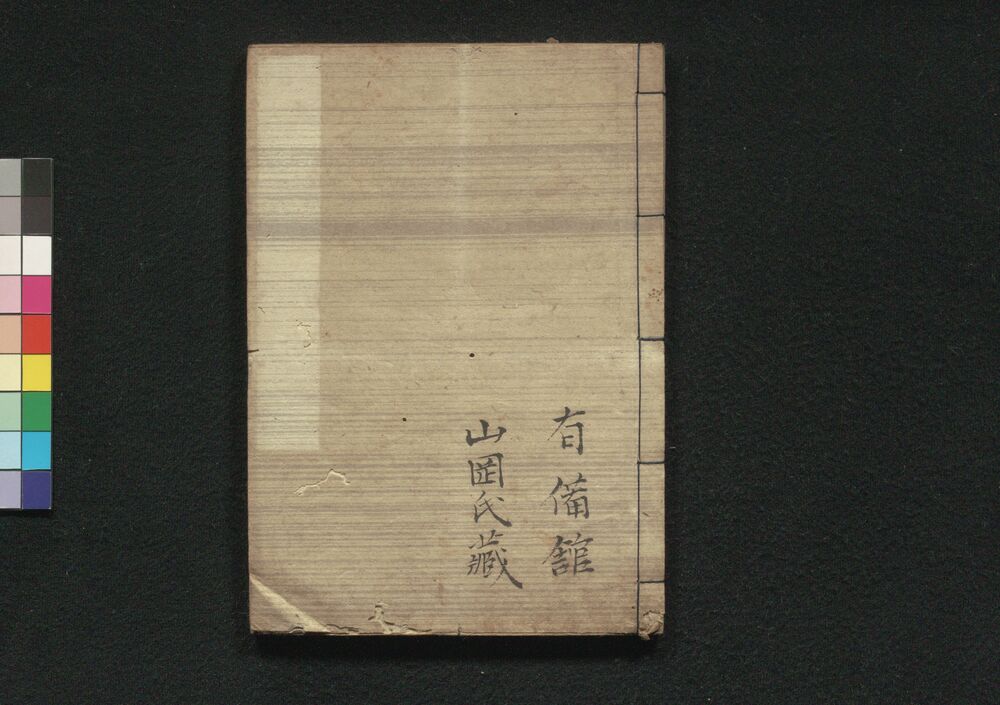 有備館
山岡氏藏